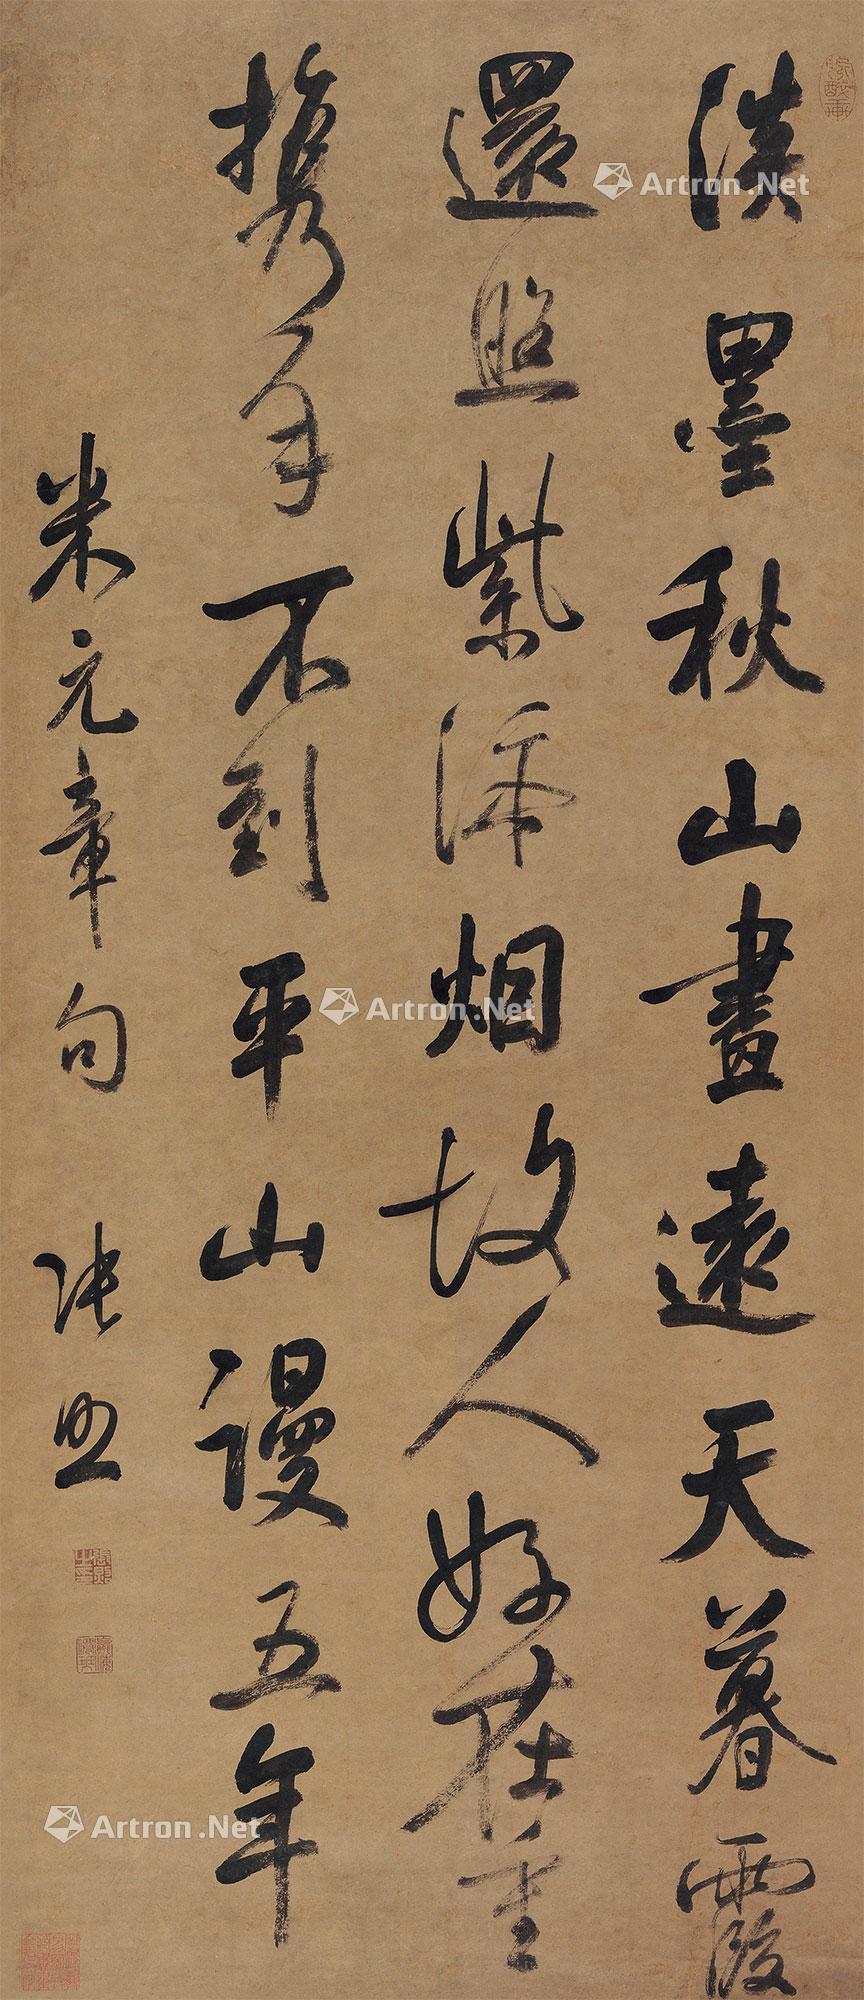 淡墨秋山畫遠天暮霞
還照紫添烟故人好在重
攜手不到平山謾五年
米元章句 張照
Artron.Net
Artron.Net
Artron.Net